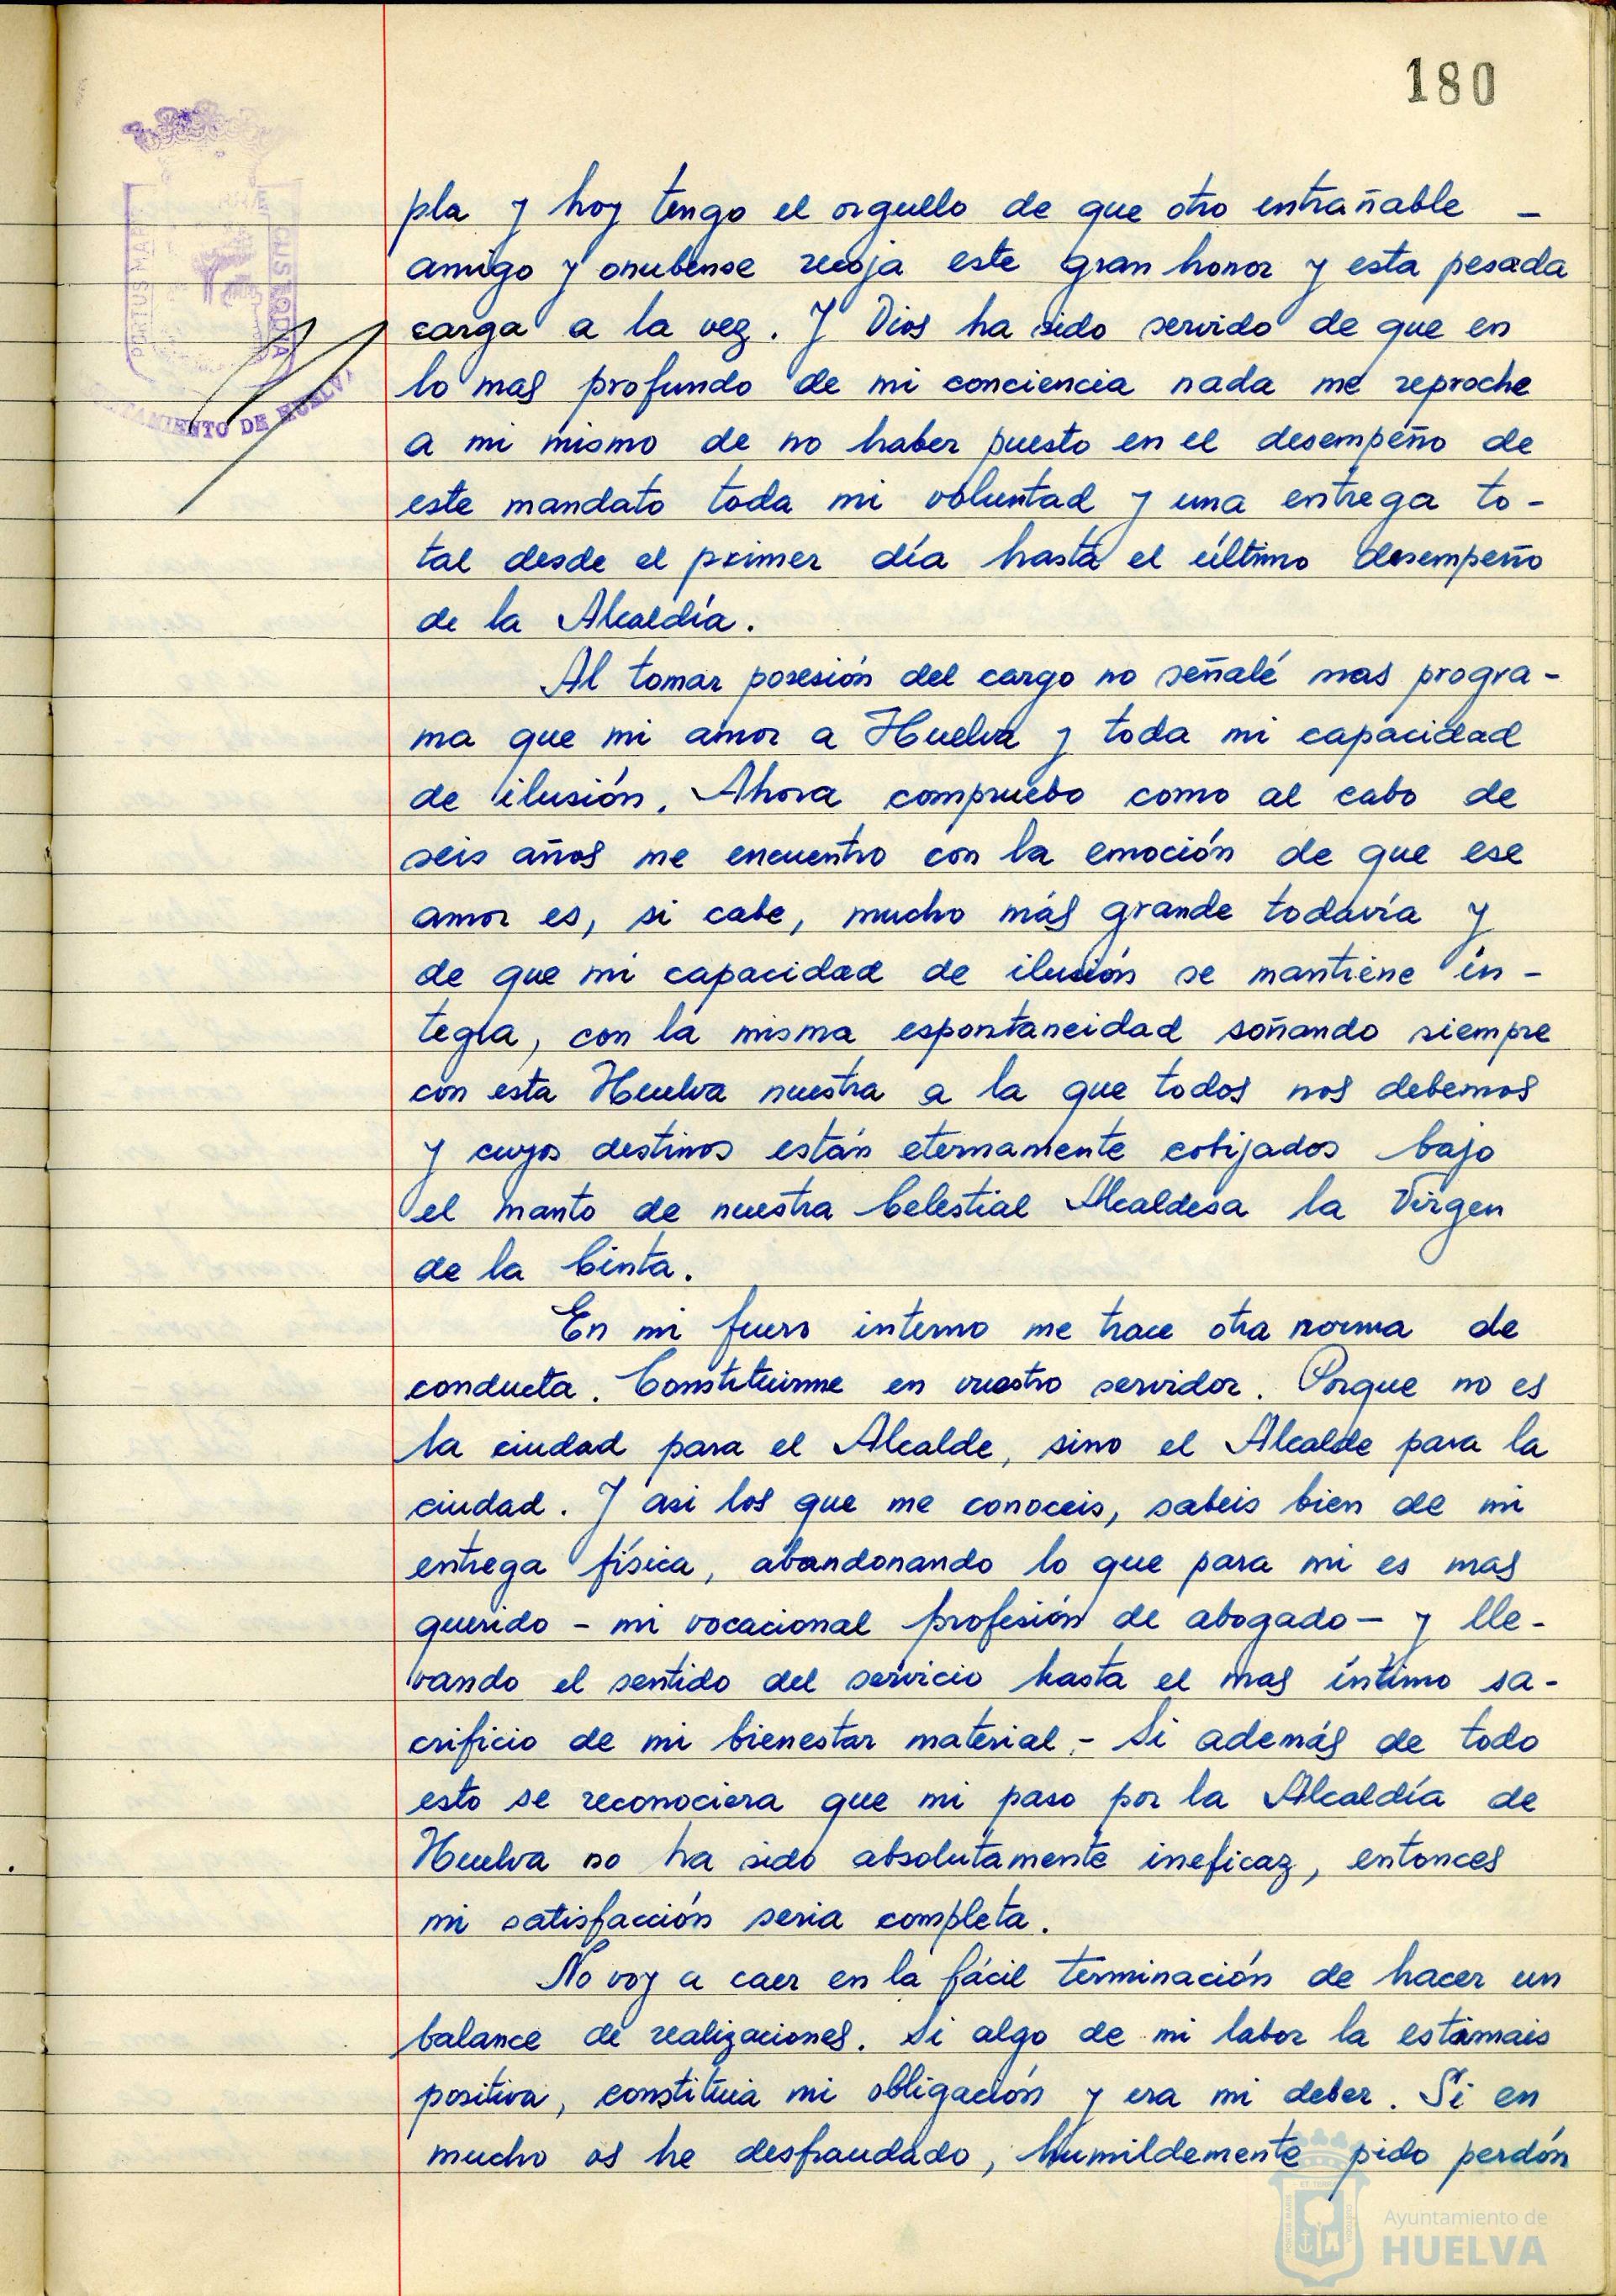 180
pla y hoy tengo el orgullo de que otro entrañable -
amigo y onubense recoja este gran honor y esta pesada
carga a la vez. Y Dios ha sido servido de que en
lo mas profundo de mi conciencia nada me reproche
a mi mismo de no haber puesto en el desempeño de
este mandato toda mi voluntad y una entrega to-
tal desde el primer día hasta el último desempeño
de la Alcaldía.
Al tomar posesión del cargo no señalé mas progra-
ma que mi amor a Huelva y toda mi capacidad
de ilusión. Ahora compruebo como al cabo de
seis años me encuentro con la emoción de que ese
amor es, si cabe, mucho más grande todavía y
de que mi capacidad de ilusión se mantiene ín-
tegra, con la misma espontaneidad soñando siempre
con esta Huelva nuestra a la que todos nos debemos
y cuyos destinos están eternamente cobijados bajo
el manto de nuestra Celestial Alcaldesa la Virgen
de la Cinta.
En mi fuero interno me trace otra norma de
conducta. Constituirme en vuestro servidor. Porque no es
la ciudad para el Alcalde, sino el Alcalde para la
ciudad. Y asi los que me conoceis, sabeis bien de mi
entrega física, abandonando lo que para mi es mas
querido - mi vocacional profesión de abogado - y lle-
vando el sentido del servicio hasta el mas íntimo sa-
crificio de mi bienestar material.- Si además de todo
esto se reconociera que mi paso por la Alcaldía de
Huelva no ha sido absolutamente ineficaz, entonces
mi satisfacción seria completa.
No voy a caer en la fácil terminación de hacer un
balance de realizaciones. Si algo de mi labor la estimais
positiva, constituia mi obligación y era mi deber. Si en
mucho os he desfraudado, humildemente pido perdón
PORTUS MARIS
CUSTODIA
AYUNTAMIENTO DE HUELVA
Ayuntamiento de
HUELVA